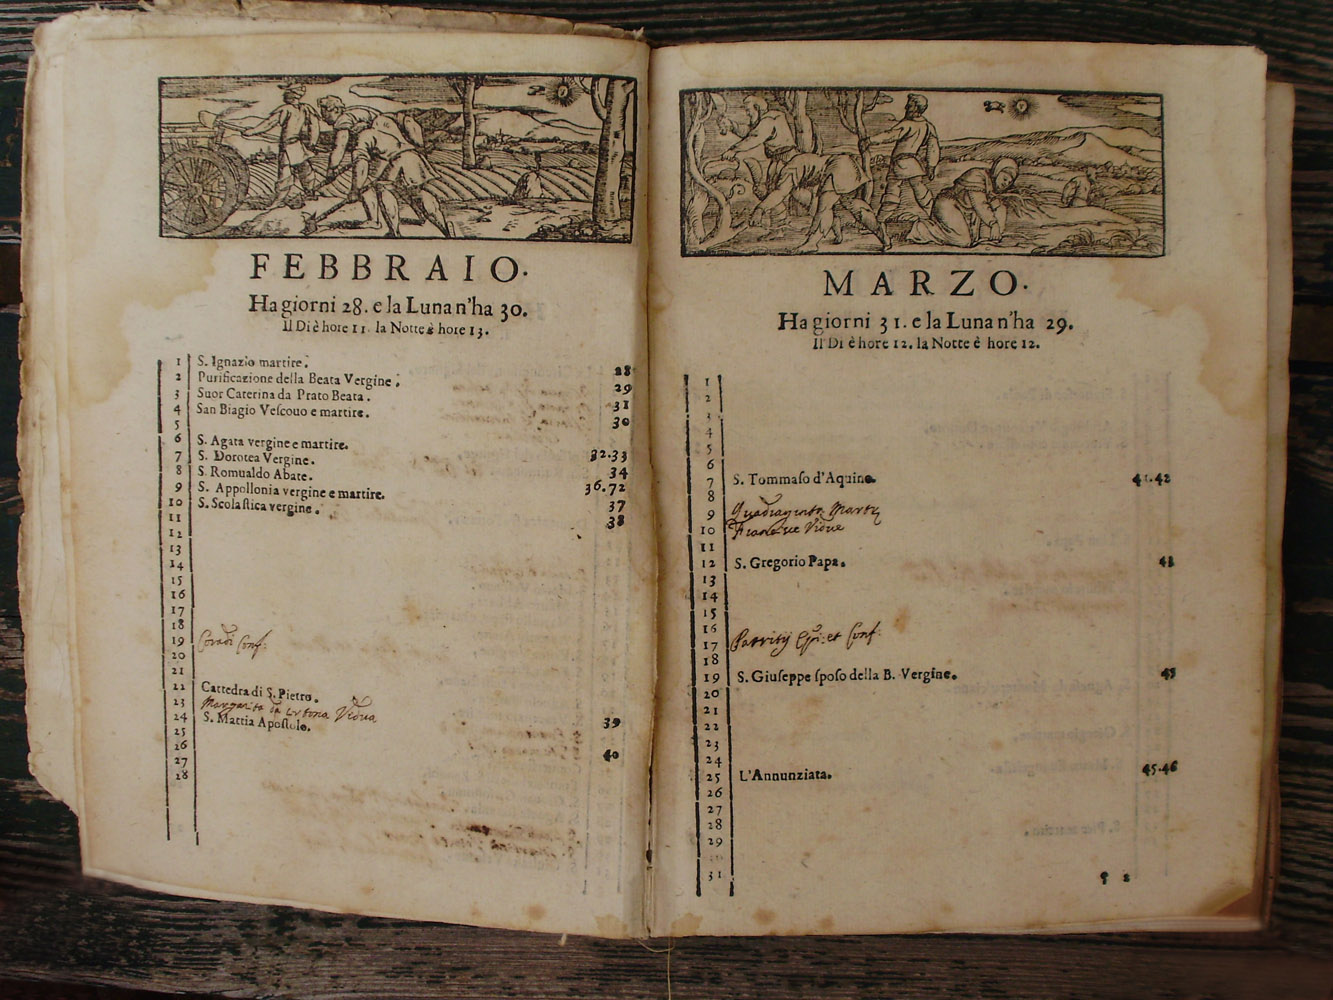 FEBBRAIO.
Ha giorni 28. e la Luna n'ha 30.
Il Dì è hore 11. la Notte è hore 13.
1 S. Ignazio martire. 28
2 Purificazione della Beata Vergine. 29
3 Suor Caterina da Prato Beata. 31
4 San Biagio Veſcouo e martire. 30
5
6 S. Agata vergine e martire. 32.33
7 S. Dorotea Vergine. 34
8 S. Romualdo Abate.
9 S. Appollonia vergine e martire. 36.72
10 S. Scolaſtica vergine. 37
11 38
12
13
14
15
16
17
18
19 Coradi Conf:
20
21
22 Cattedra di S. Pietro.
23 Margarita Vidua
24 S. Mattia Apoſtolo. 39
25
26 40
27
28
MARZO.
Ha giorni 31. e la Luna n'ha 29.
Il Dì è hore 12. la Notte è hore 12.
1
2
3
4
5
6
7 S. Tommaſo d'Aquino. 41.42
8
9 Quadraginta Marty
10 Vidue
11
12 S. Gregorio Papa. 43
13
14
15
16
17 Patritij Epi: et Conf:
18
19 S. Giuſeppe ſpoſo della B. Vergine. 45
20
21
22
23
24
25 L'Annunziata. 45.46
26
27
28
29
30
31
2